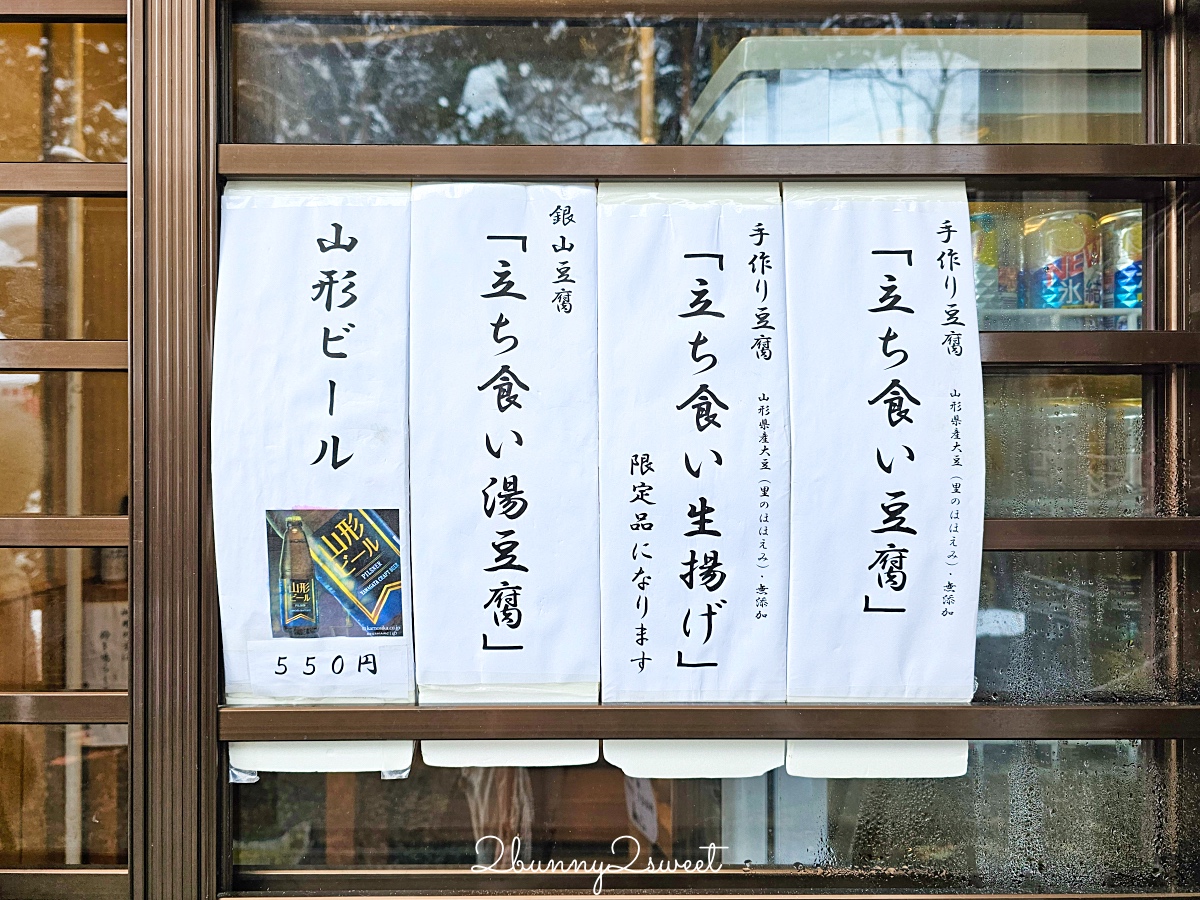 手作り豆腐 山形県産大豆(里のほほえみ)・無添加
「立ち食い豆腐」
手作り豆腐 山形県産大豆(里のほほえみ)・無添加
「立ち食い生揚げ」
限定品になります
銀山豆腐
「立ち食い湯豆腐」
山形ビール
山形
ビール
PILSNER
YAMAGATA CRAFT BEER
山形
ビール
550円
NEW
氷結
2bunny2sweet